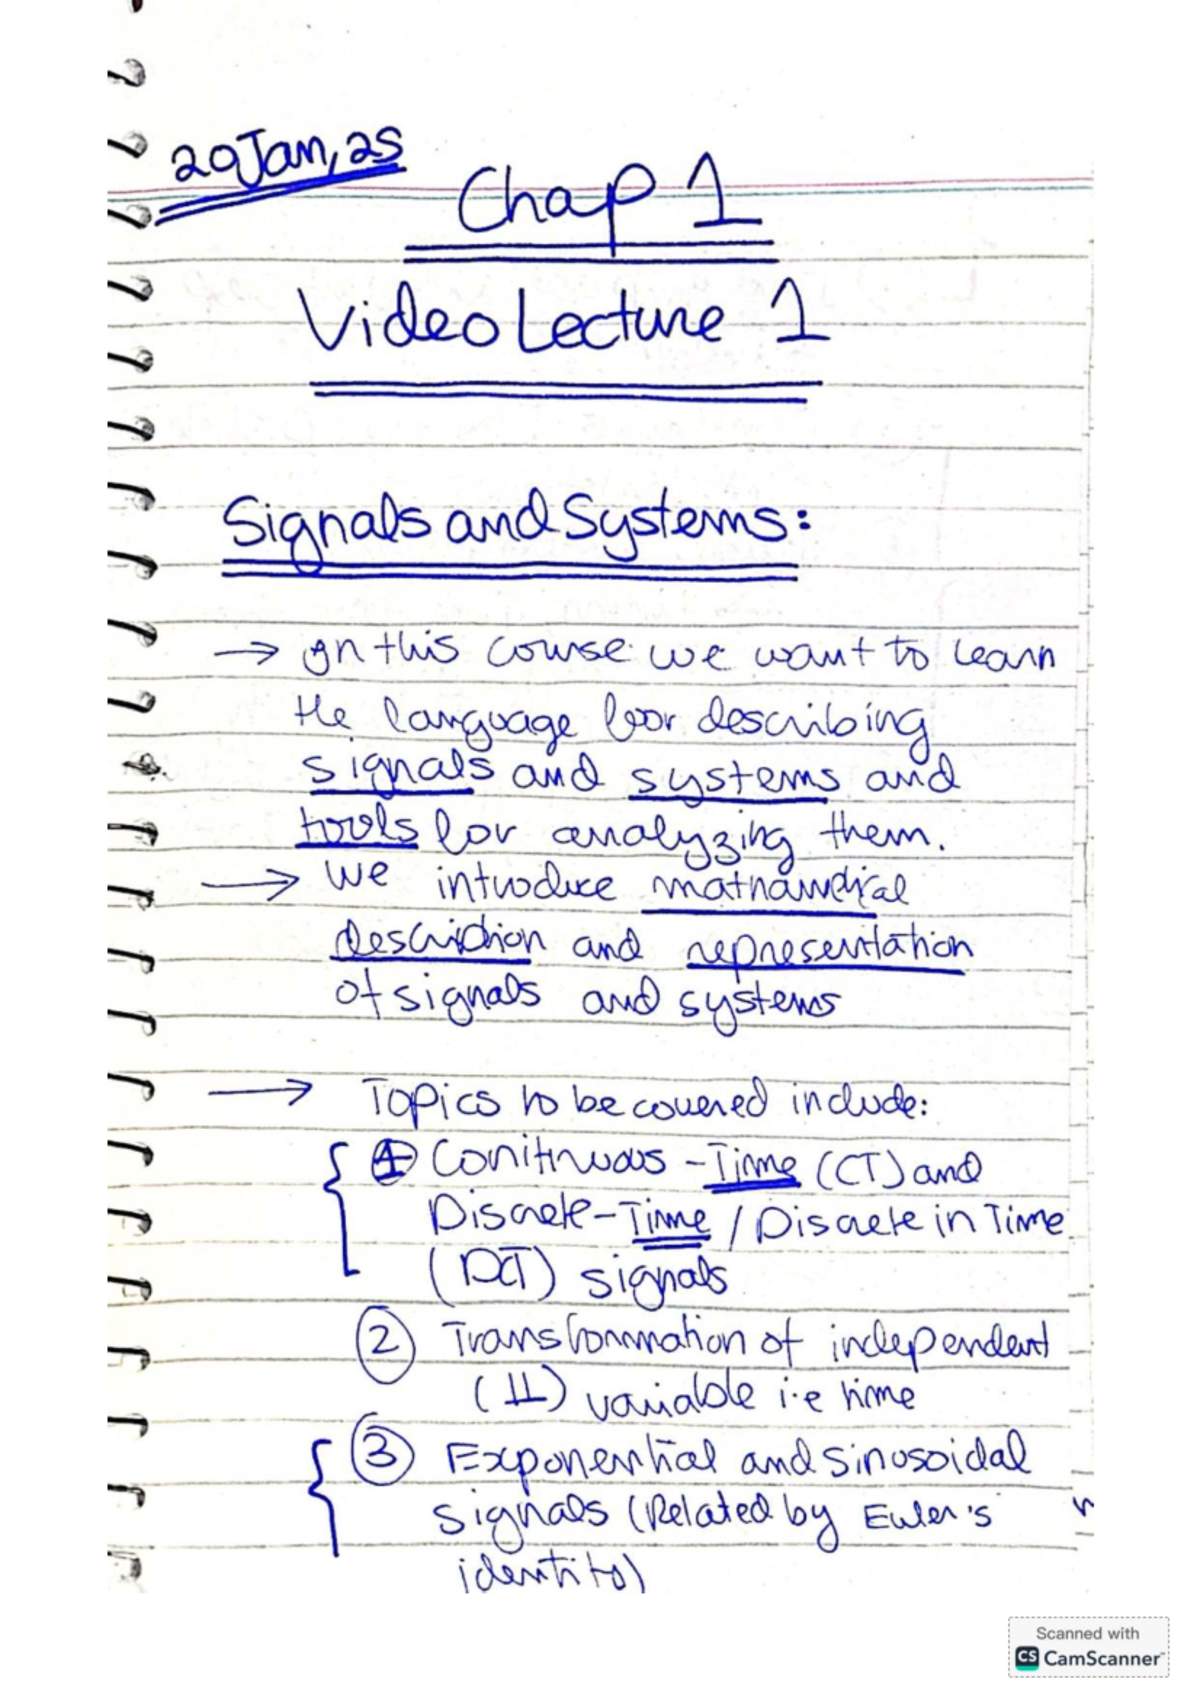 20Jan, 25
Chap 1
Video Lecture 1
Signals and Systems:
→ In this course we want to learn
the language for describing
signals and systems and
tools for analyzing them.
→ We introduce mathamdical
description and representation
of signals and systems
→ Topics to be covered include:
① Conitinuous-Time (CT) and
Discrete-Time / Discrete in Time
(DT) signals
② Transformation of independent
(⊥⊥) variable i.e time
③ Exponential and sinusoidal
signals (Related by Euler's
identity)
Scanned with
CS CamScanner